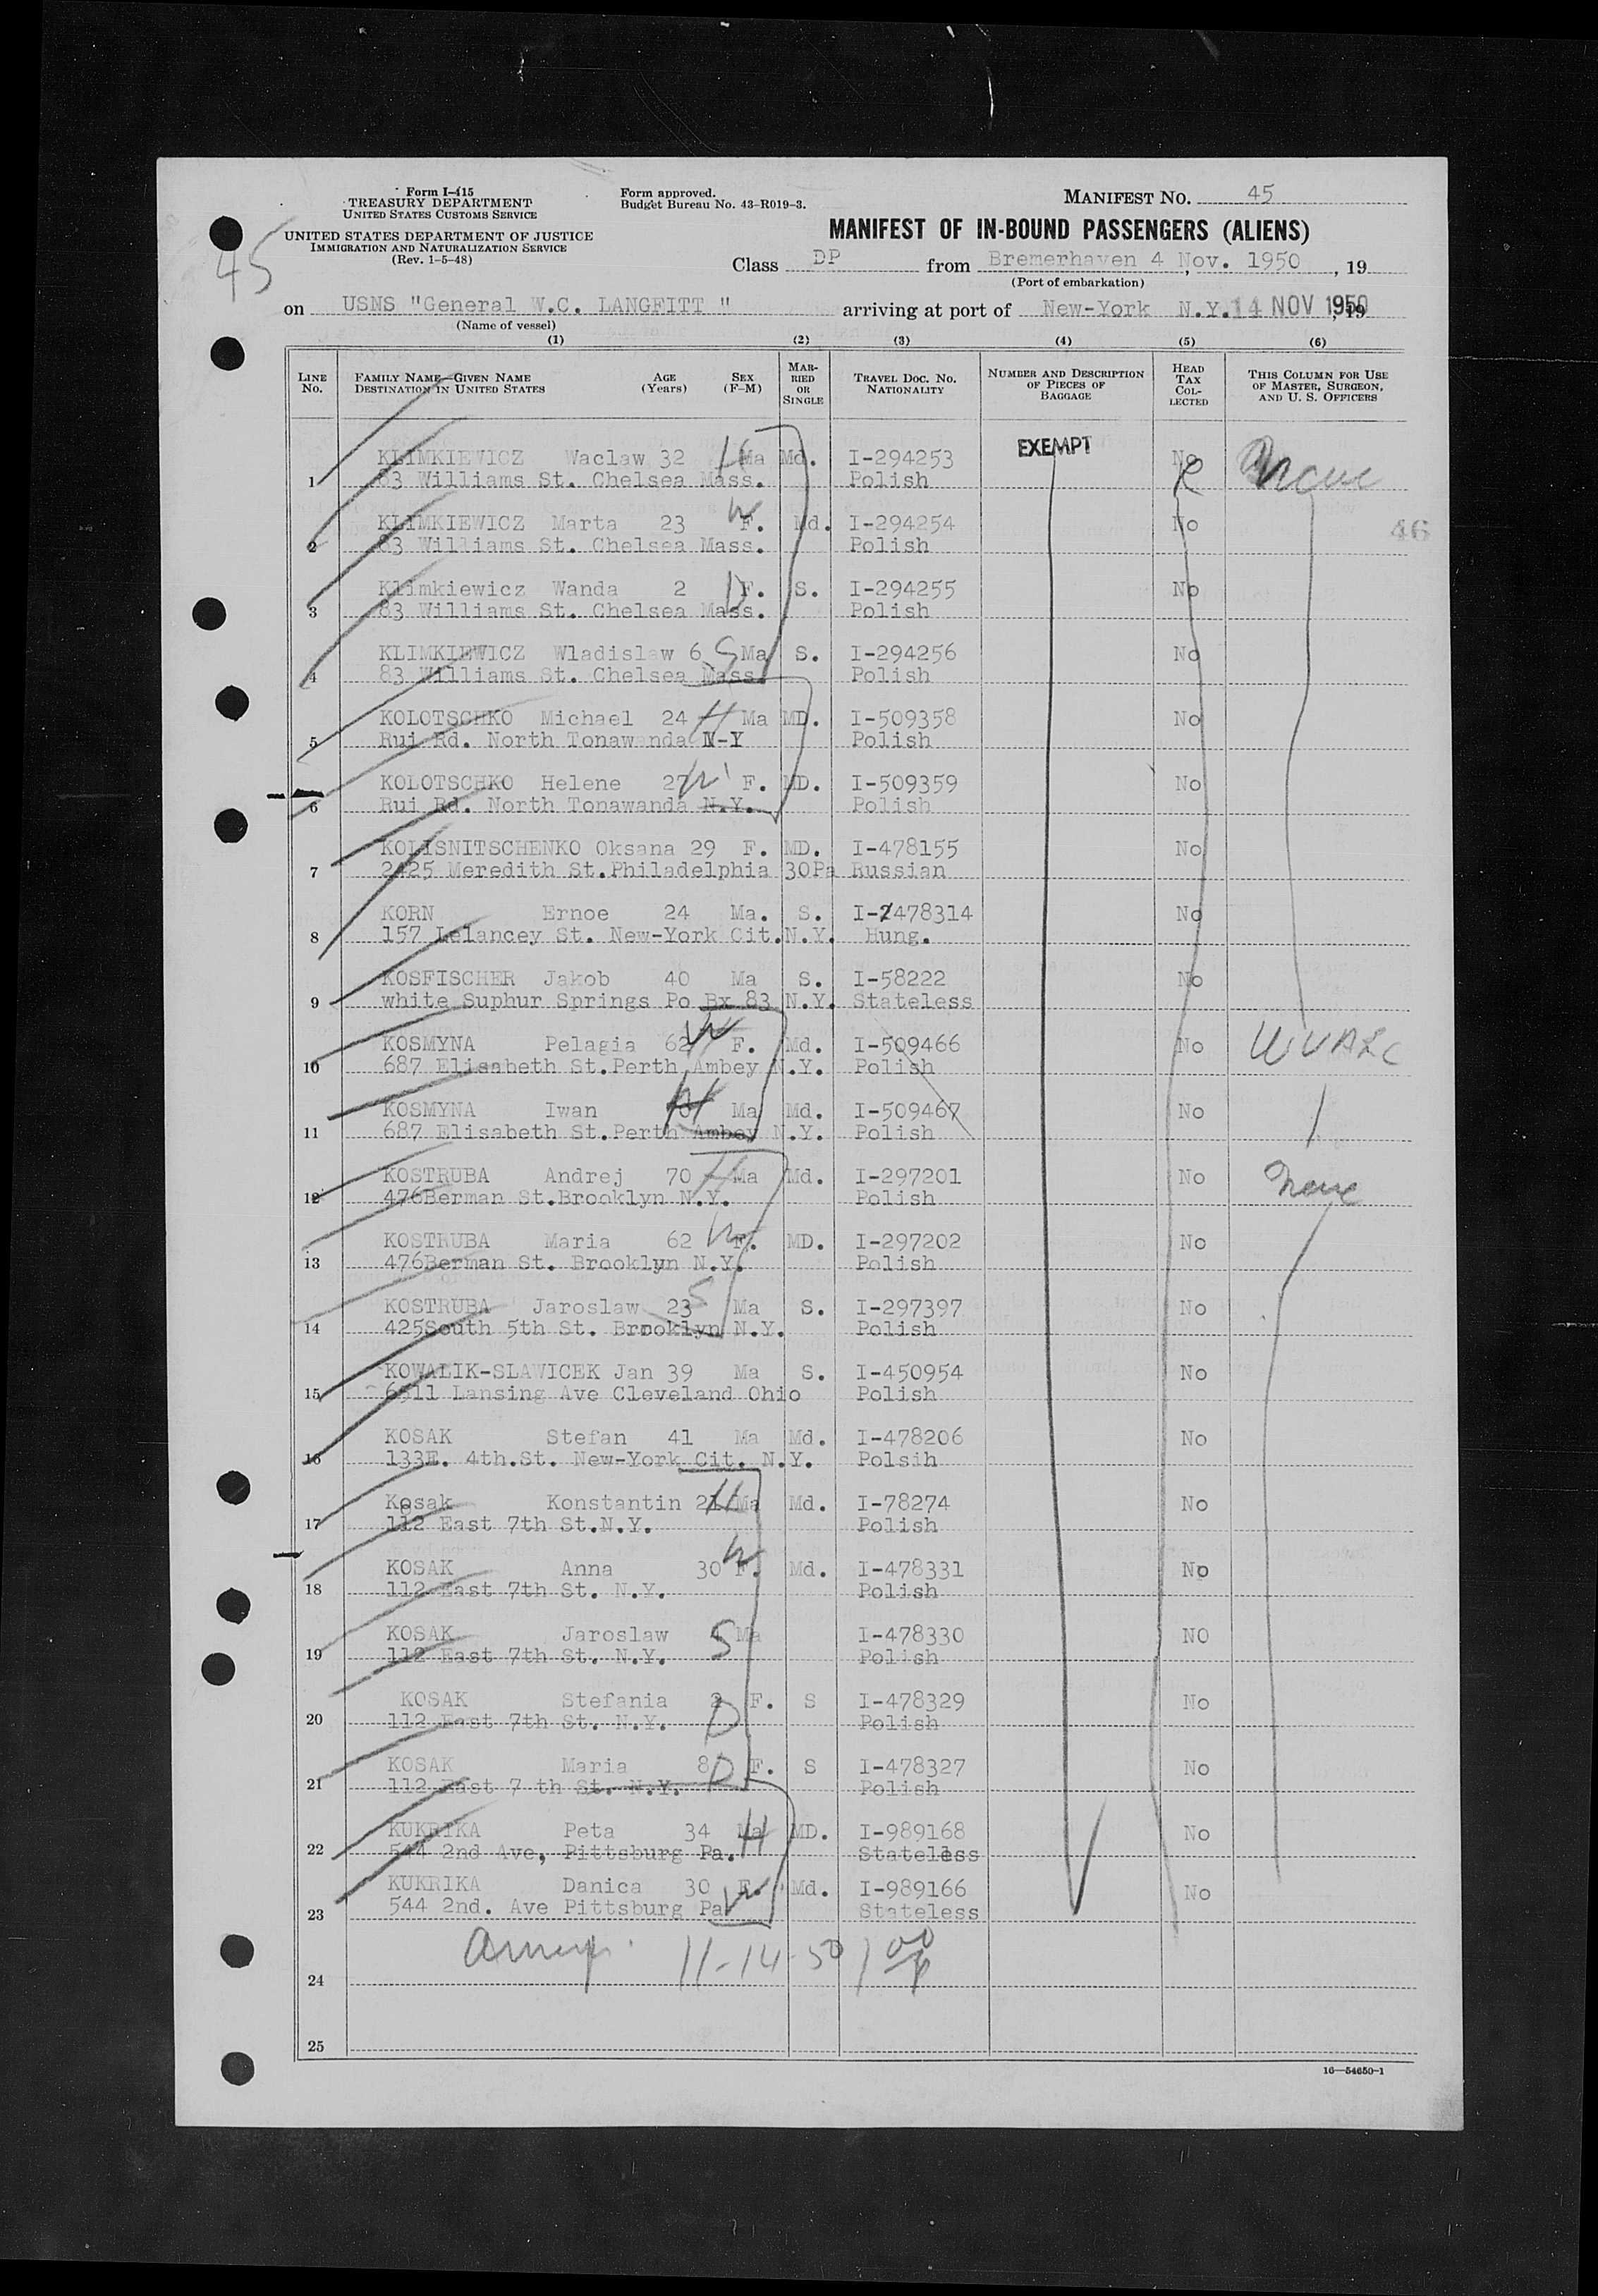 Form I-415
TREASURY DEPARTMENT
UNITED STATES CUSTOMS SERVICE
UNITED STATES DEPARTMENT OF JUSTICE
IMMIGRATION AND NATURALIZATION SERVICE
(Rev. 1-5-48)
Form approved.
Budget Bureau No. 43-R019-3.
MANIFEST NO. 45
45
MANIFEST OF IN-BOUND PASSENGERS (ALIENS)
Class DP from Bremerhaven 4 Nov. 1950, 19
(Port of embarkation)
on USNS "General W.C. LANGFITT " arriving at port of New-York N.Y. 14 NOV 1950, 19
(Name of vessel)
(1) (2) (3) (4) (5) (6)
LINE NO. FAMILY NAME—GIVEN NAME DESTINATION IN UNITED STATES AGE (Years) SEX (F-M) MARRIED OR SINGLE TRAVEL DOC. NO. NATIONALITY NUMBER AND DESCRIPTION OF PIECES OF BAGGAGE HEAD TAX COLLECTED THIS COLUMN FOR USE OF MASTER, SURGEON, AND U. S. OFFICERS
KLIMKIEWICZ Waclaw 32 H Ma Md. I-294253 EXEMPT No
1 83 Williams St. Chelsea Mass. Polish
KLIMKIEWICZ Marta 23 W F. Md. I-294254 No
46
2 83 Williams St. Chelsea Mass. Polish
Klimkiewicz Wanda 2 D F. S. I-294255 No
3 83 Williams St. Chelsea Mass. Polish
KLIMKIEWICZ Wladislaw 6 S Ma S. I-294256 No
4 83 Williams St. Chelsea Mass. Polish
KOLOTSCHKO Michael 24 H Ma MD. I-509358 No
5 Rui Rd. North Tonawanda N-Y Polish
KOLOTSCHKO Helene 27 W F. MD. I-509359 No
6 Rui Rd. North Tonawanda N.Y. Polish
KOLISNITSCHENKO Oksana 29 F. MD. I-478155 No
7 2425 Meredith St.Philadelphia 30Pa Russian
KORN Ernoe 24 Ma. S. I-478314 No
8 157 Lelancey St. New-York Cit.N.Y. Hung.
KOSFISCHER Jakob 40 Ma S. I-58222 No
9 white Suphur Springs Po Bx 83 N.Y. Stateless
KOSMYNA Pelagia 62 W F. Md. I-509466 No
10 687 Elisabeth St.Perth Ambey N.Y. Polish
KOSMYNA Iwan H Ma Md. I-509467 No
11 687 Elisabeth St.Perth Ambey N.Y. Polish
KOSTRUBA Andrej 70 H Ma Md. I-297201 No None
12 476Berman St.Brooklyn N.Y. Polish
KOSTRUBA Maria 62 W F. MD. I-297202 No
13 476Berman St. Brooklyn N.Y. Polish
KOSTRUBA Jaroslaw 23 S Ma S. I-297397 No
14 425South 5th St. Brooklyn N.Y. Polish
KOWALIK-SLAWICEK Jan 39 Ma S. I-450954 No
15 6911 Lansing Ave Cleveland Ohio Polish
KOSAK Stefan 41 Ma Md. I-478206 No
16 133E. 4th.St. New-York Cit. N.Y. Polsih
Kosak Konstantin 21 H Ma Md. I-78274 No
17 112 East 7th St.N.Y. Polish
KOSAK Anna 30 W F. Md. I-478331 No
18 112 East 7th St. N.Y. Polish
KOSAK Jaroslaw S Ma I-478330 NO
19 112 East 7th St. N.Y. Polish
KOSAK Stefania 2 F. S I-478329 No
20 112 East 7th St. N.Y. D Polish
KOSAK Maria 8 D F. S I-478327 No
21 112 East 7 th St. N.Y. Polish
KUKRIKA Peta 34 Ma H MD. I-989168 No
22 544 2nd Ave, Pittsburg Pa. Stateless
KUKRIKA Danica 30 F. W Md. I-989166 No
23 544 2nd. Ave Pittsburg Pa Stateless
11-14-50 1 00
24
25
16—54650-1